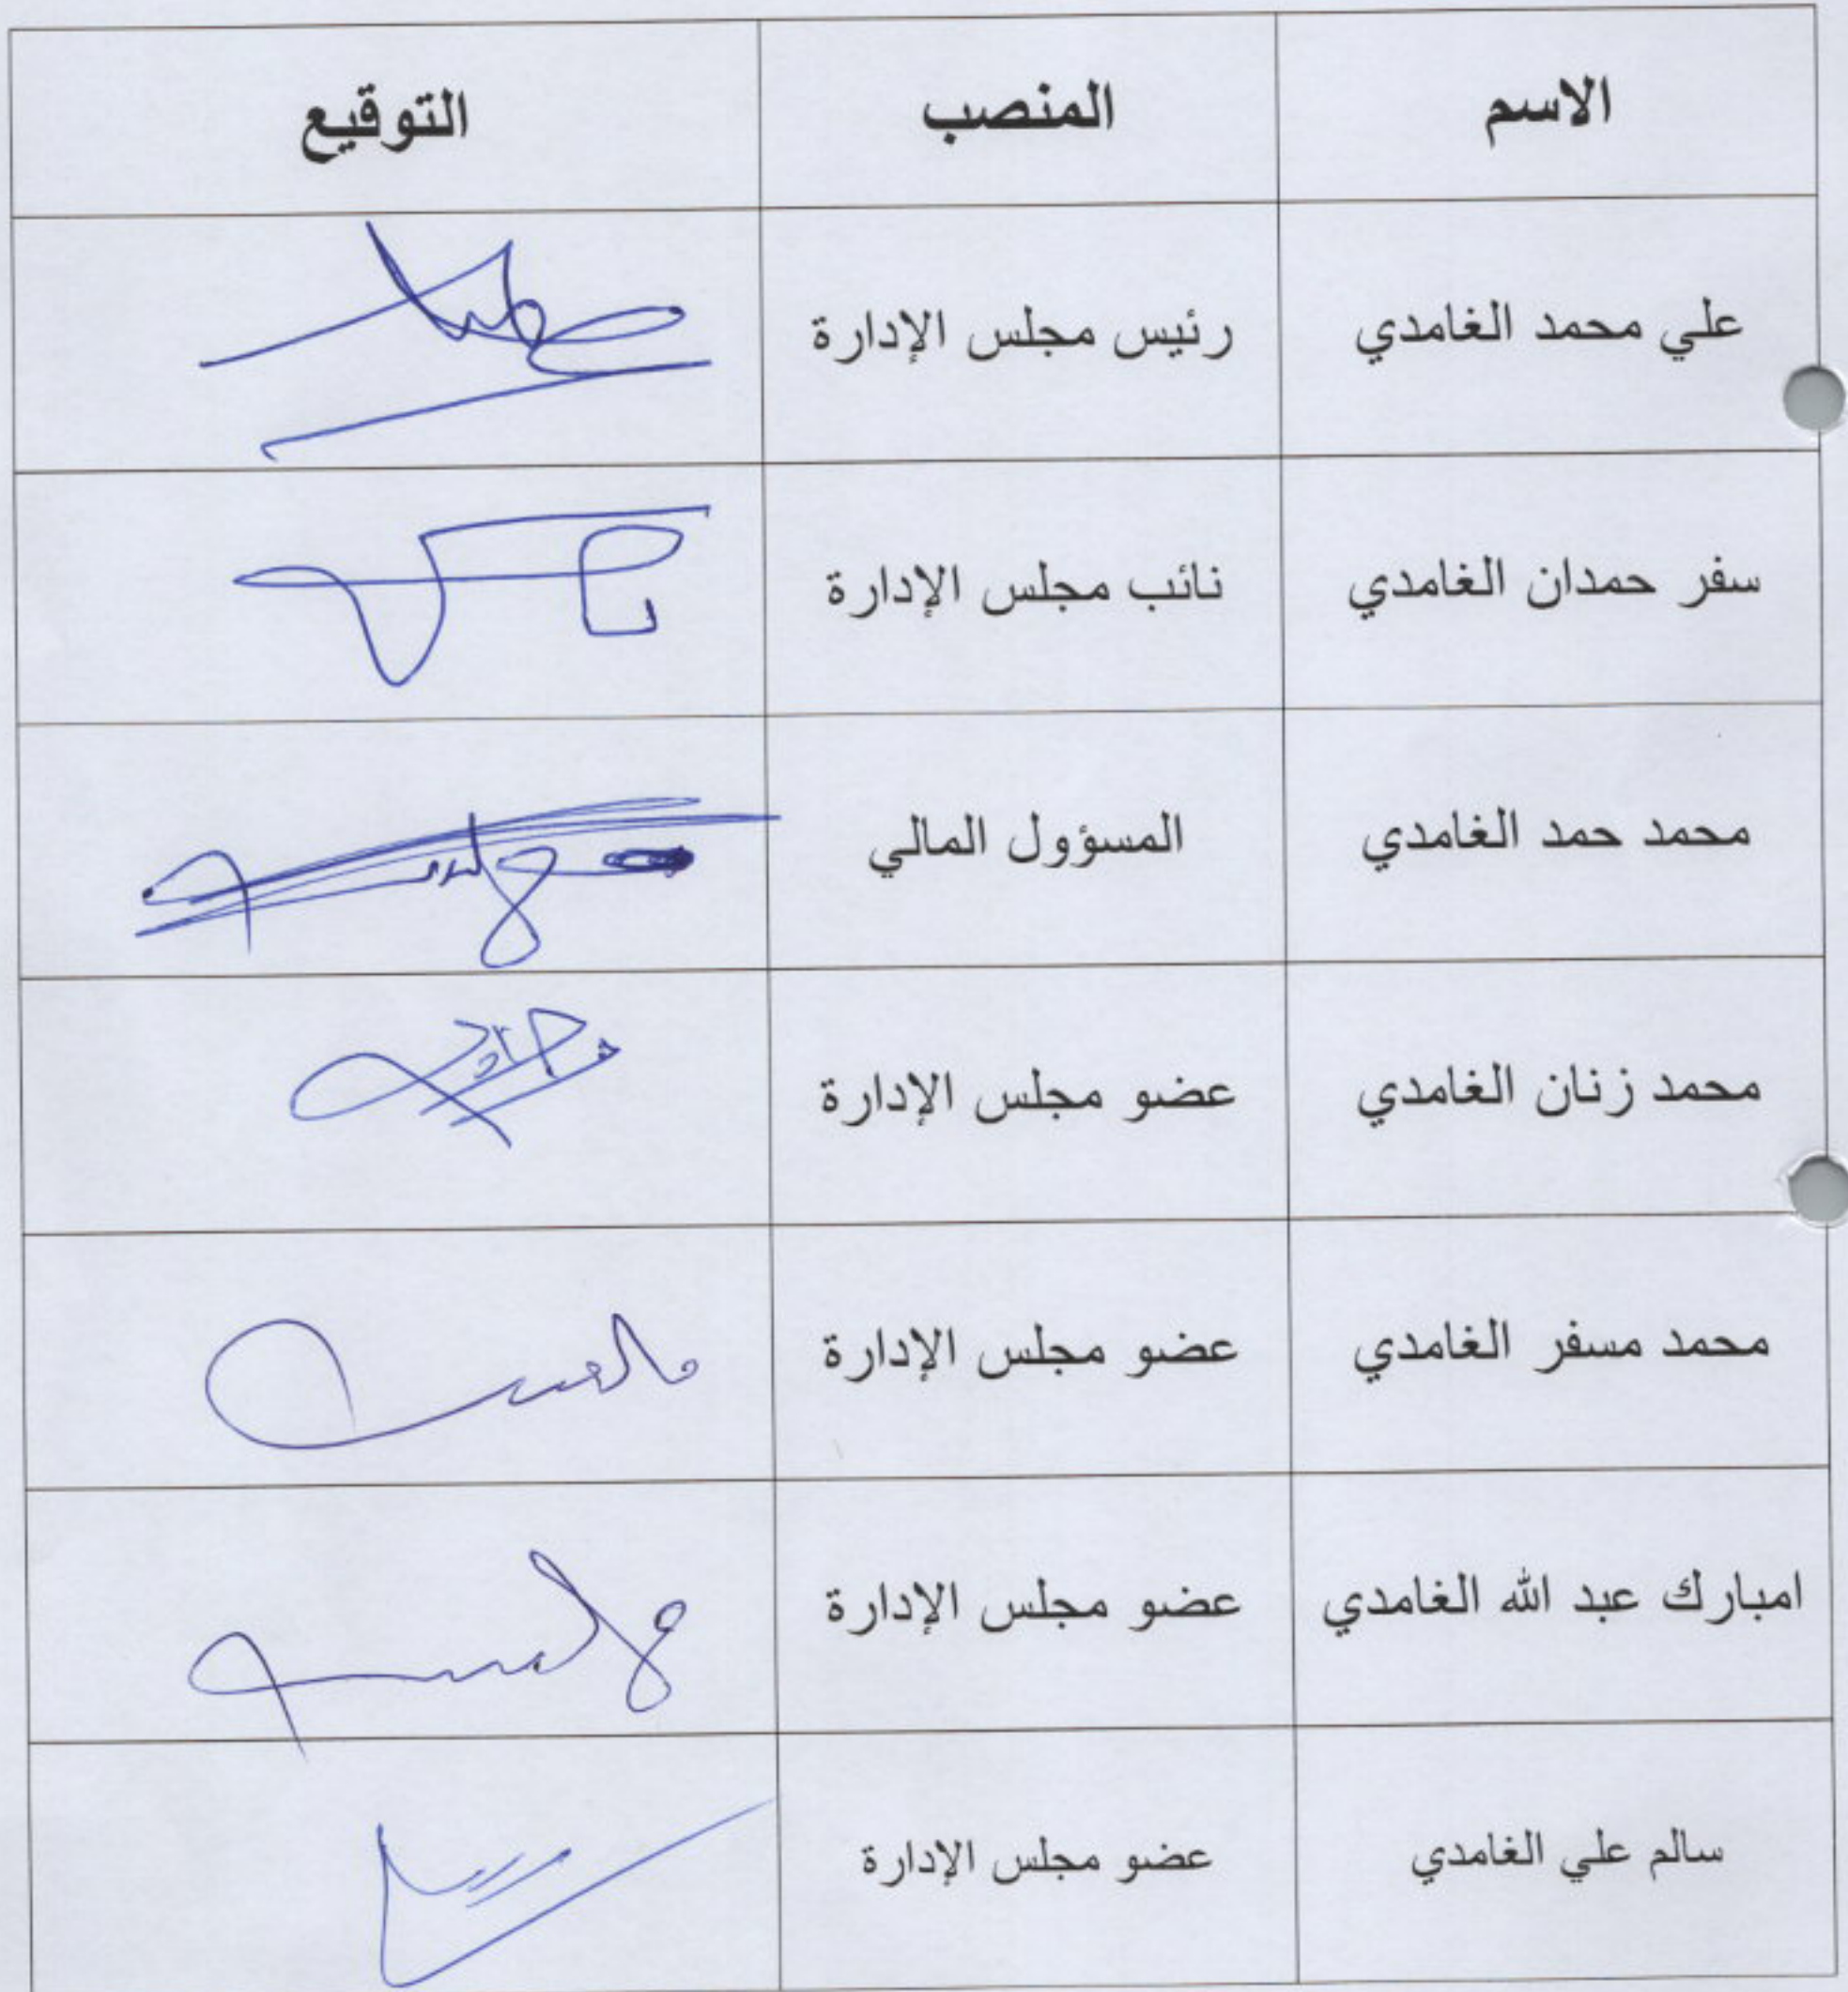 الاسم المنصب التوقيع
علي محمد الغامدي رئيس مجلس الإدارة
سفر حمدان الغامدي نائب مجلس الإدارة
محمد حمد الغامدي المسؤول المالي
محمد زنان الغامدي عضو مجلس الإدارة
محمد مسفر الغامدي عضو مجلس الإدارة
امبارك عبد الله الغامدي عضو مجلس الإدارة
سالم علي الغامدي عضو مجلس الإدارة